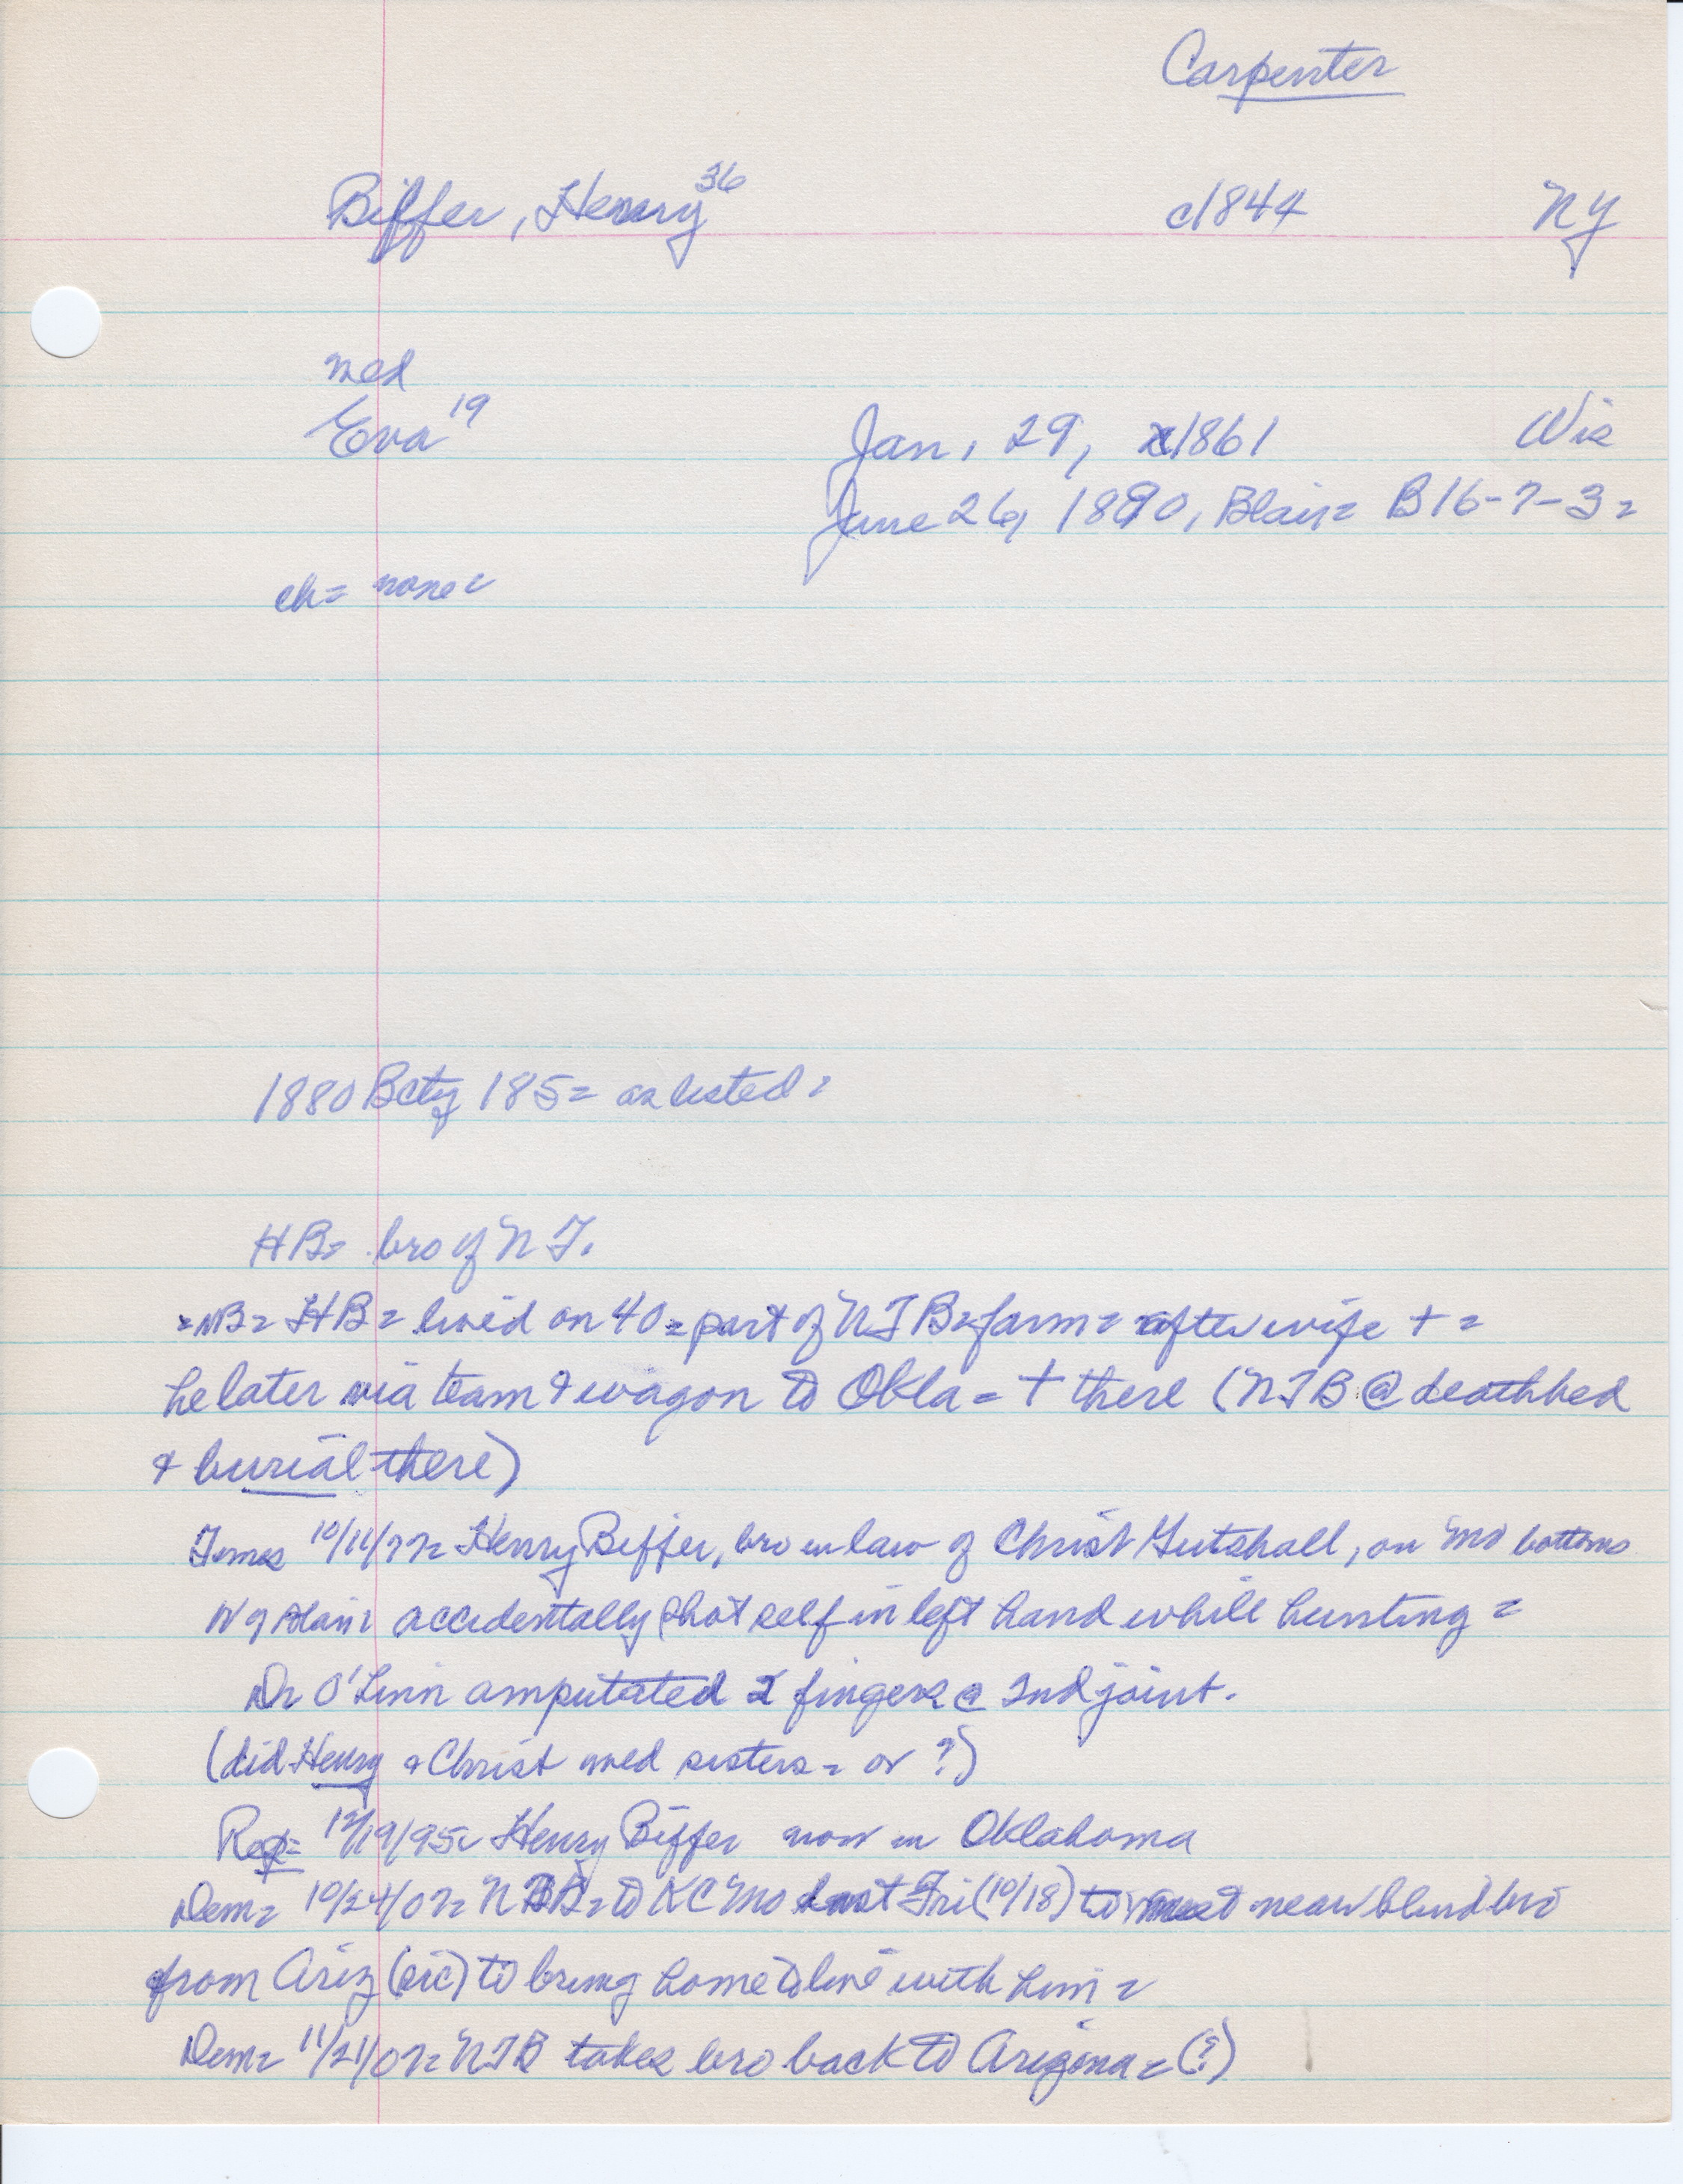 Carpenter
Biffer, Henry 36 c1844 NY
med
Eva 19 Jan, 29, 1861 Wis
June 26, 1890, Blair= B16-7-3=
ch= none=
1880 Bcty 185= as listed=
HB= bro of NJ.
=NB= HB= lived on 40= part of NJB=farm= after wife + =
he later via team & wagon to Okla= + there (NJB @ deathbed
& burial there)
Times 10/11/77= Henry Biffer, bro in law of Christ Gutshall, on Mo bottoms
N of Blair= accidentally shot self in left hand while hunting =
Dr O'Linn amputated 2 fingers @ 2nd joint.
(did Henry & Christ med sisters= or ?)
Rep= 12/19/95= Henry Biffer now in Oklahoma
Dem= 10/24/07= NJB= to KC Mo last Fri (10/18) to meet near blind bro
from Ariz (sic) to bring home to live with him=
Dem= 11/21/07= NJB takes bro back to Arizona= (?)